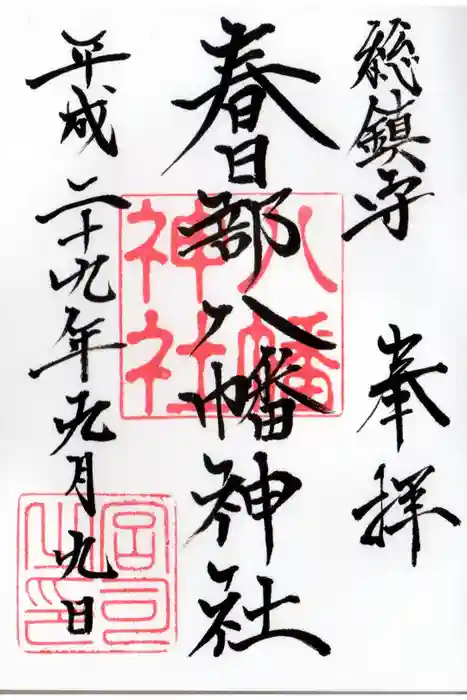 総鎮守 奉拝
春日部八幡神社
平成二十九年九月九日
八幡神社
宮司之印